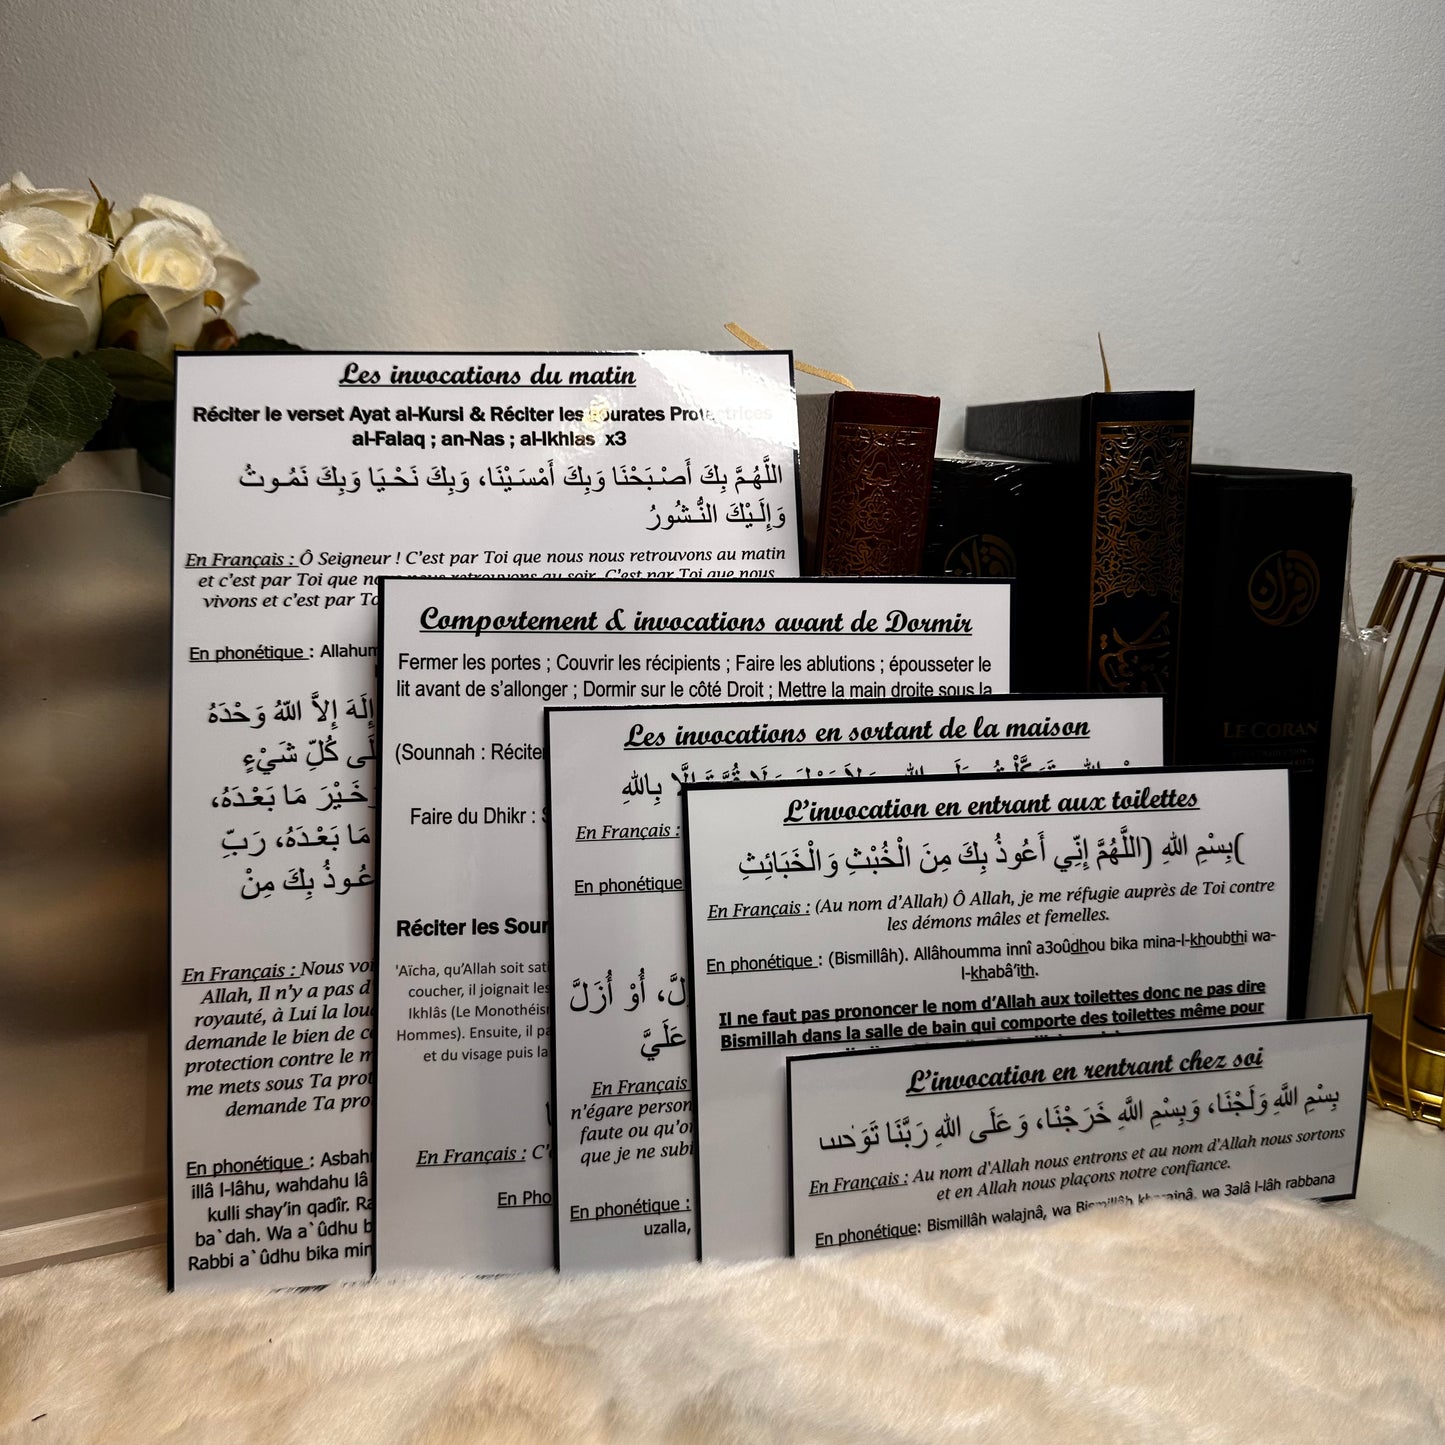 Les invocations du matin
Réciter le verset Ayat al-Kursi & Réciter les Sourates Protectrices
al-Falaq ; an-Nas ; al-Ikhlas x3
اللَّهُمَّ بِكَ أَصْبَحْنَا وَبِكَ أَمْسَيْنَا، وَبِكَ نَحْيَا وَبِكَ نَمُوتُ
وَإِلَيْكَ النُّشُورُ
En Français : Ô Seigneur ! C’est par Toi que nous nous retrouvons au matin
et c’est par Toi que nous nous retrouvons au soir. C’est par Toi que nous
vivons et c’est par To
En phonétique : Allahum
إِلَهَ إِلاَّ اللهُ وَحْدَهُ
لَى كُلِّ شَيْءٍ
خَيْرَ مَا بَعْدَهُ،
مَا بَعْدَهُ، رَبِّ
عُوذُ بِكَ مِنْ
En Français : Nous voi
Allah, Il n’y a pas d
royauté, à Lui la lou
demande le bien de c
protection contre le m
me mets sous Ta prot
demande Ta pro
En phonétique : Asbah
illâ l-lâhu, wahdahu lâ
kulli shay’in qadîr. Ra
ba`dah. Wa a`ûdhu b
Rabbi a`ûdhu bika min
Comportement & invocations avant de Dormir
Fermer les portes ; Couvrir les récipients ; Faire les ablutions ; épousseter le
lit avant de s’allonger ; Dormir sur le côté Droit ; Mettre la main droite sous la
(Sounnah : Réciter
Faire du Dhikr : S
Réciter les Sour
'Aïcha, qu’Allah soit sati
coucher, il joignait les
Ikhlâs (Le Monothéis
Hommes). Ensuite, il pa
et du visage puis la
En Français : C’
En Pho
Les invocations en sortant de la maison
بِاللهِ
En Français :
En phonétique
لَّ، أَوْ أُزَلَّ
عَلَيَّ
En Français
n’égare person
faute ou qu’o
que je ne subi
En phonétique :
uzalla,
L’invocation en entrant aux toilettes
)بِسْمِ اللهِ (اللَّهُمَّ إِنِّي أَعُوذُ بِكَ مِنَ الْخُبْثِ وَالْخَبَائِثِ
En Français : (Au nom d’Allah) Ô Allah, je me réfugie auprès de Toi contre
les démons mâles et femelles.
En phonétique : (Bismillâh). Allâhoumma innî a3oûdhou bika mina-l-khoubthi wa-
l-khabâ’ith.
Il ne faut pas prononcer le nom d’Allah aux toilettes donc ne pas dire
Bismillah dans la salle de bain qui comporte des toilettes même pour
L’invocation en rentrant chez soi
بِسْمِ اللَّهِ وَلَجْنَا، وَبِسْمِ اللَّهِ خَرَجْنَا، وَعَلَى اللهِ رَبَّنَا
En Français : Au nom d'Allah nous entrons et au nom d'Allah nous sortons
et en Allah nous plaçons notre confiance.
En phonétique: Bismillâh walajnâ, wa Bismillâh kharajnâ, wa 3alâ l-lâh rabbana
LE CORAN